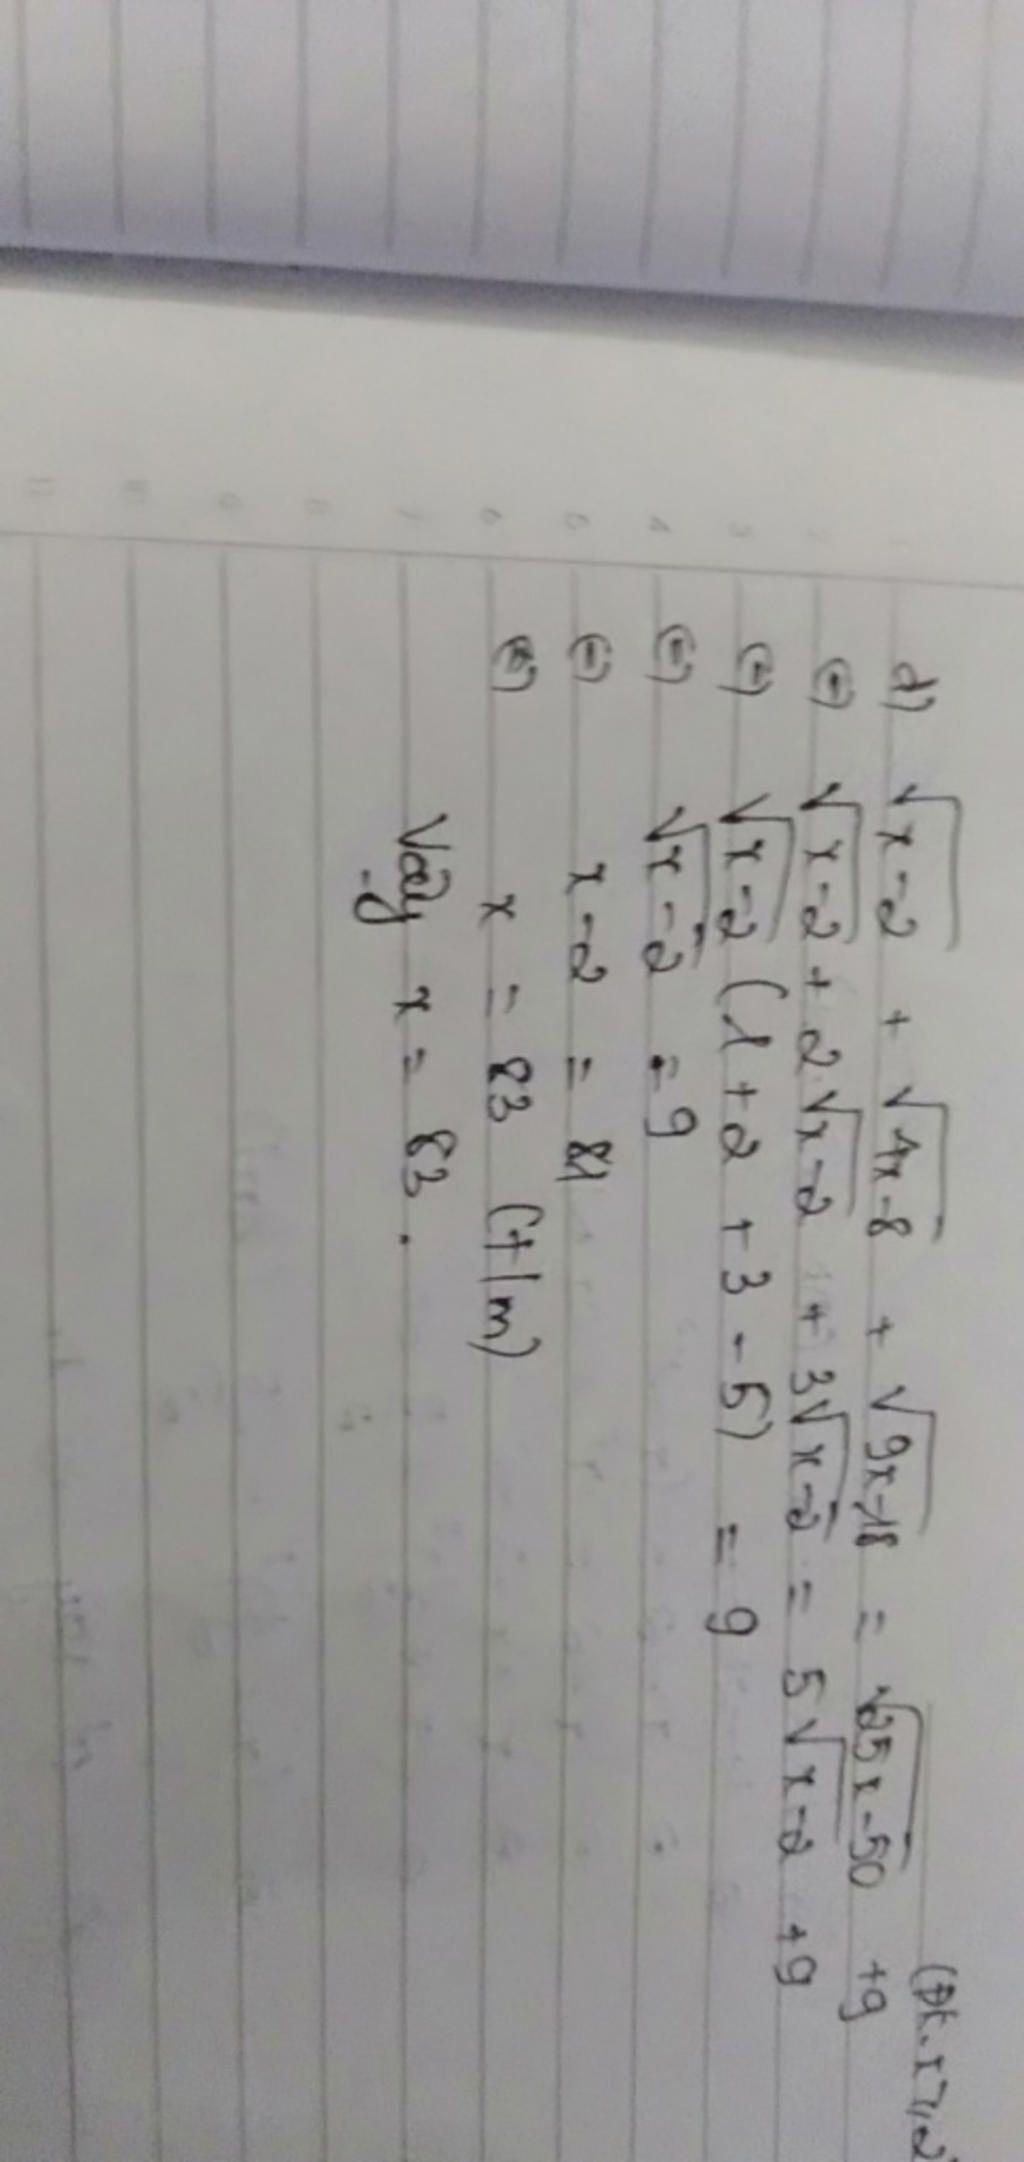 (ĐK: x ≥ 2
d) √(x-2) + √(4x-8) + √(9x-18) = √(25x-50) +9
⇔ √(x-2) + 2√(x-2) + 3√(x-2) = 5√(x-2) +9
⇔ √(x-2) (1+2+3-5) = 9
⇔ √(x-2) = 9
⇔ x-2 = 81
⇔ x = 83 (t/m)
Vậy x = 83.